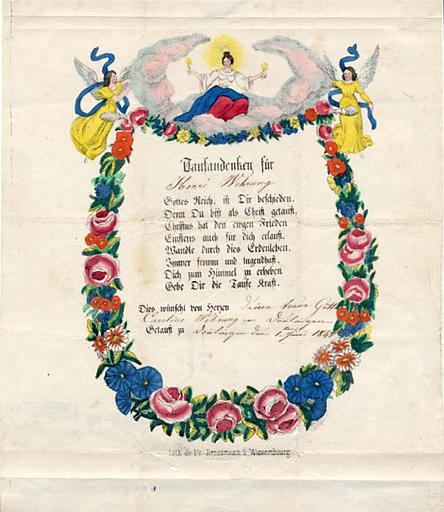 Taufandenken für
Henri Wehrung
Gottes Reich, ist Dir beschieden.
Denn Du bist als Christ getauft,
Christus hat den ewgen Frieden
Einstens auch für dich erkauft.
Wandle durch dies Erdenleben,
Immer fromm und tugendhaft,
Dich zum Himmel zu erheben
Gebe Dir die Taufe Kraft.
Dies wünscht von Herzen Deine
Caroline Wehrung von
Getauft zu den Juni
Lith. de Fr. Wentzel à Wissembourg